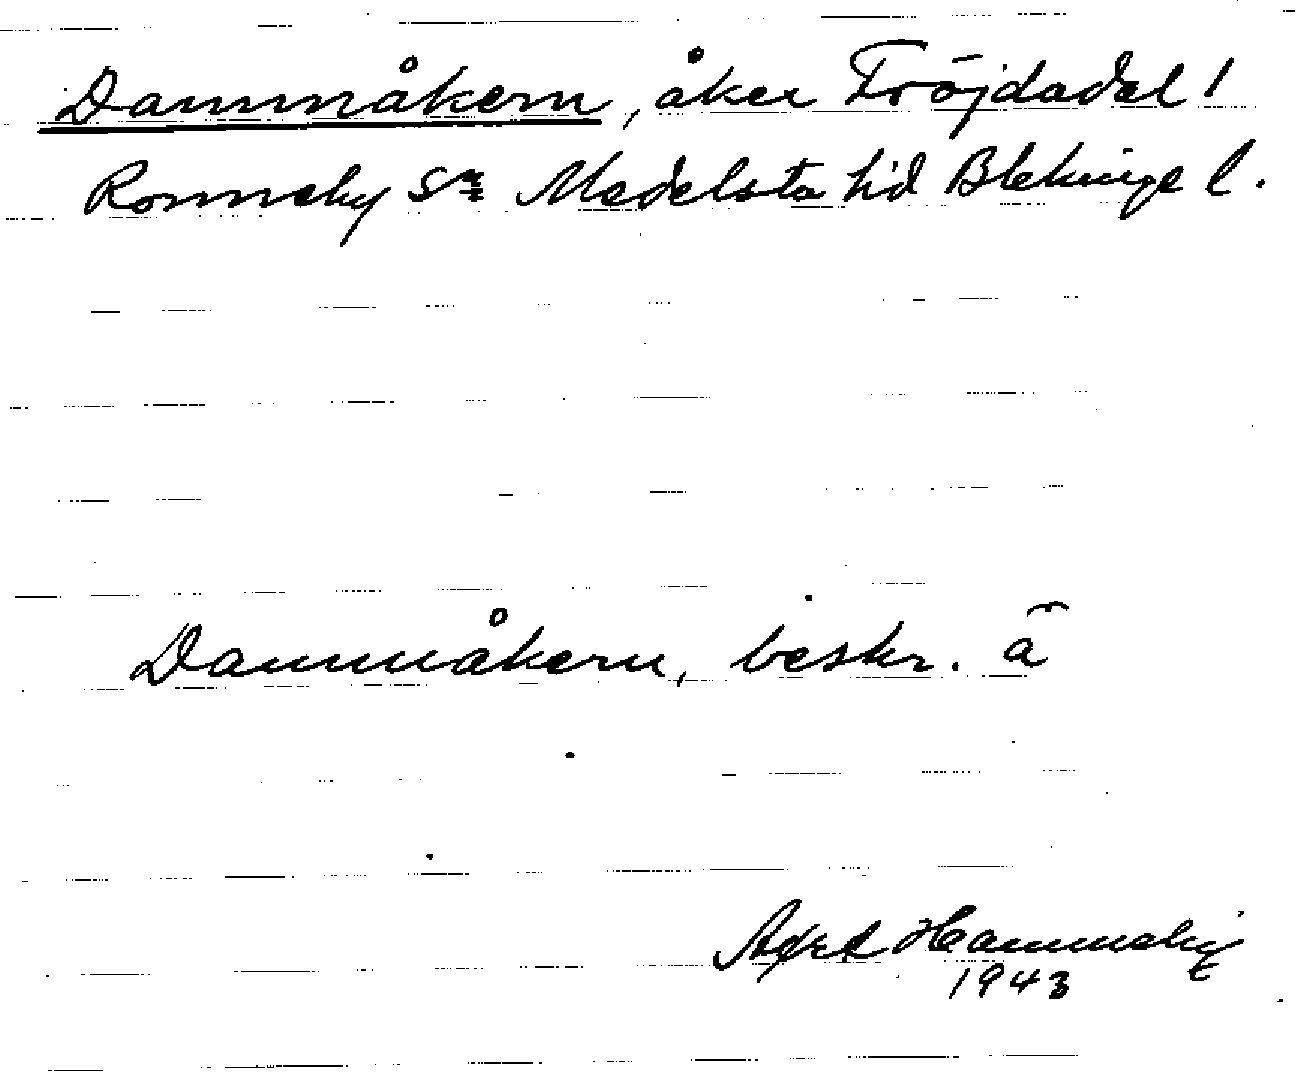 Dammåkern, åker Fröjdadal 1
Ronneby sn Medelsta hd Blekinge l.
Dammåkern, beskr. å
Axel
1943